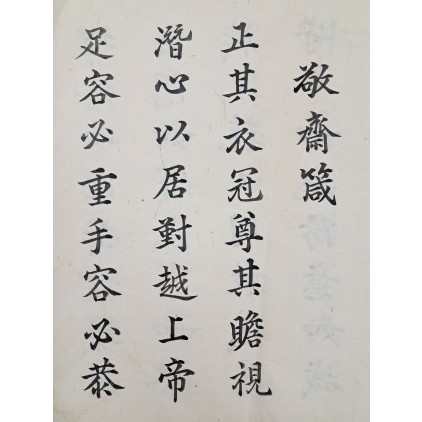 敬齋箴
正其衣冠尊其瞻視
潛心以居對越上帝
足容必重手容必恭